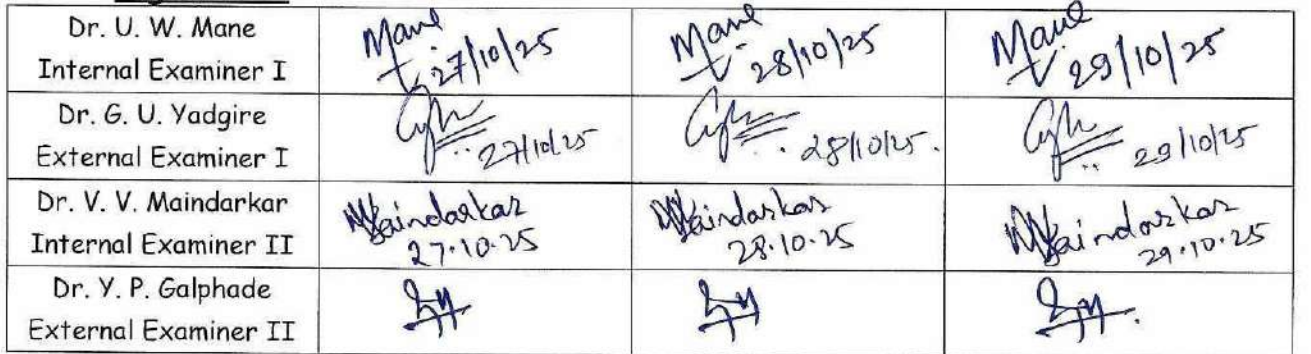 Dr. U. W. Mane
Internal Examiner I
Mane
27/10/25
Mane
28/10/25
Mane
29/10/25
Dr. G. U. Yadgire
External Examiner I
27/10/25
28/10/25.
29/10/25
Dr. V. V. Maindarkar
Internal Examiner II
Maindarkar
27.10.25
Maindarkar
28.10.25
Maindarkar
29.10.25
Dr. Y. P. Galphade
External Examiner II